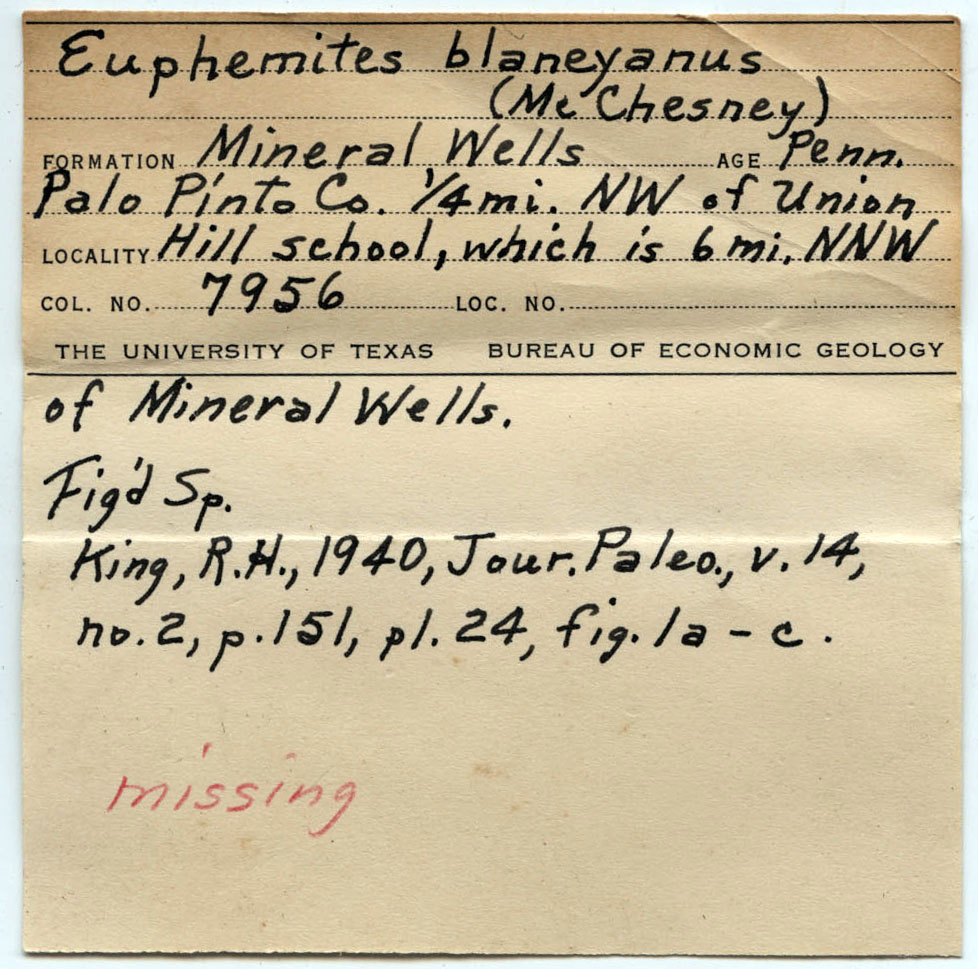 Euphemites blaneyanus
(Mc Chesney)
FORMATION Mineral Wells AGE Penn.
Palo Pinto Co. 1/4 mi. NW of Union
LOCALITY Hill school, which is 6 mi. NNW
COL. NO. 7956 LOC. NO.
THE UNIVERSITY OF TEXAS BUREAU OF ECONOMIC GEOLOGY
of Mineral Wells.
Fig'd Sp.
King, R.H., 1940, Jour. Paleo., v. 14,
no. 2, p. 151, pl. 24, fig. 1a - c.
missing